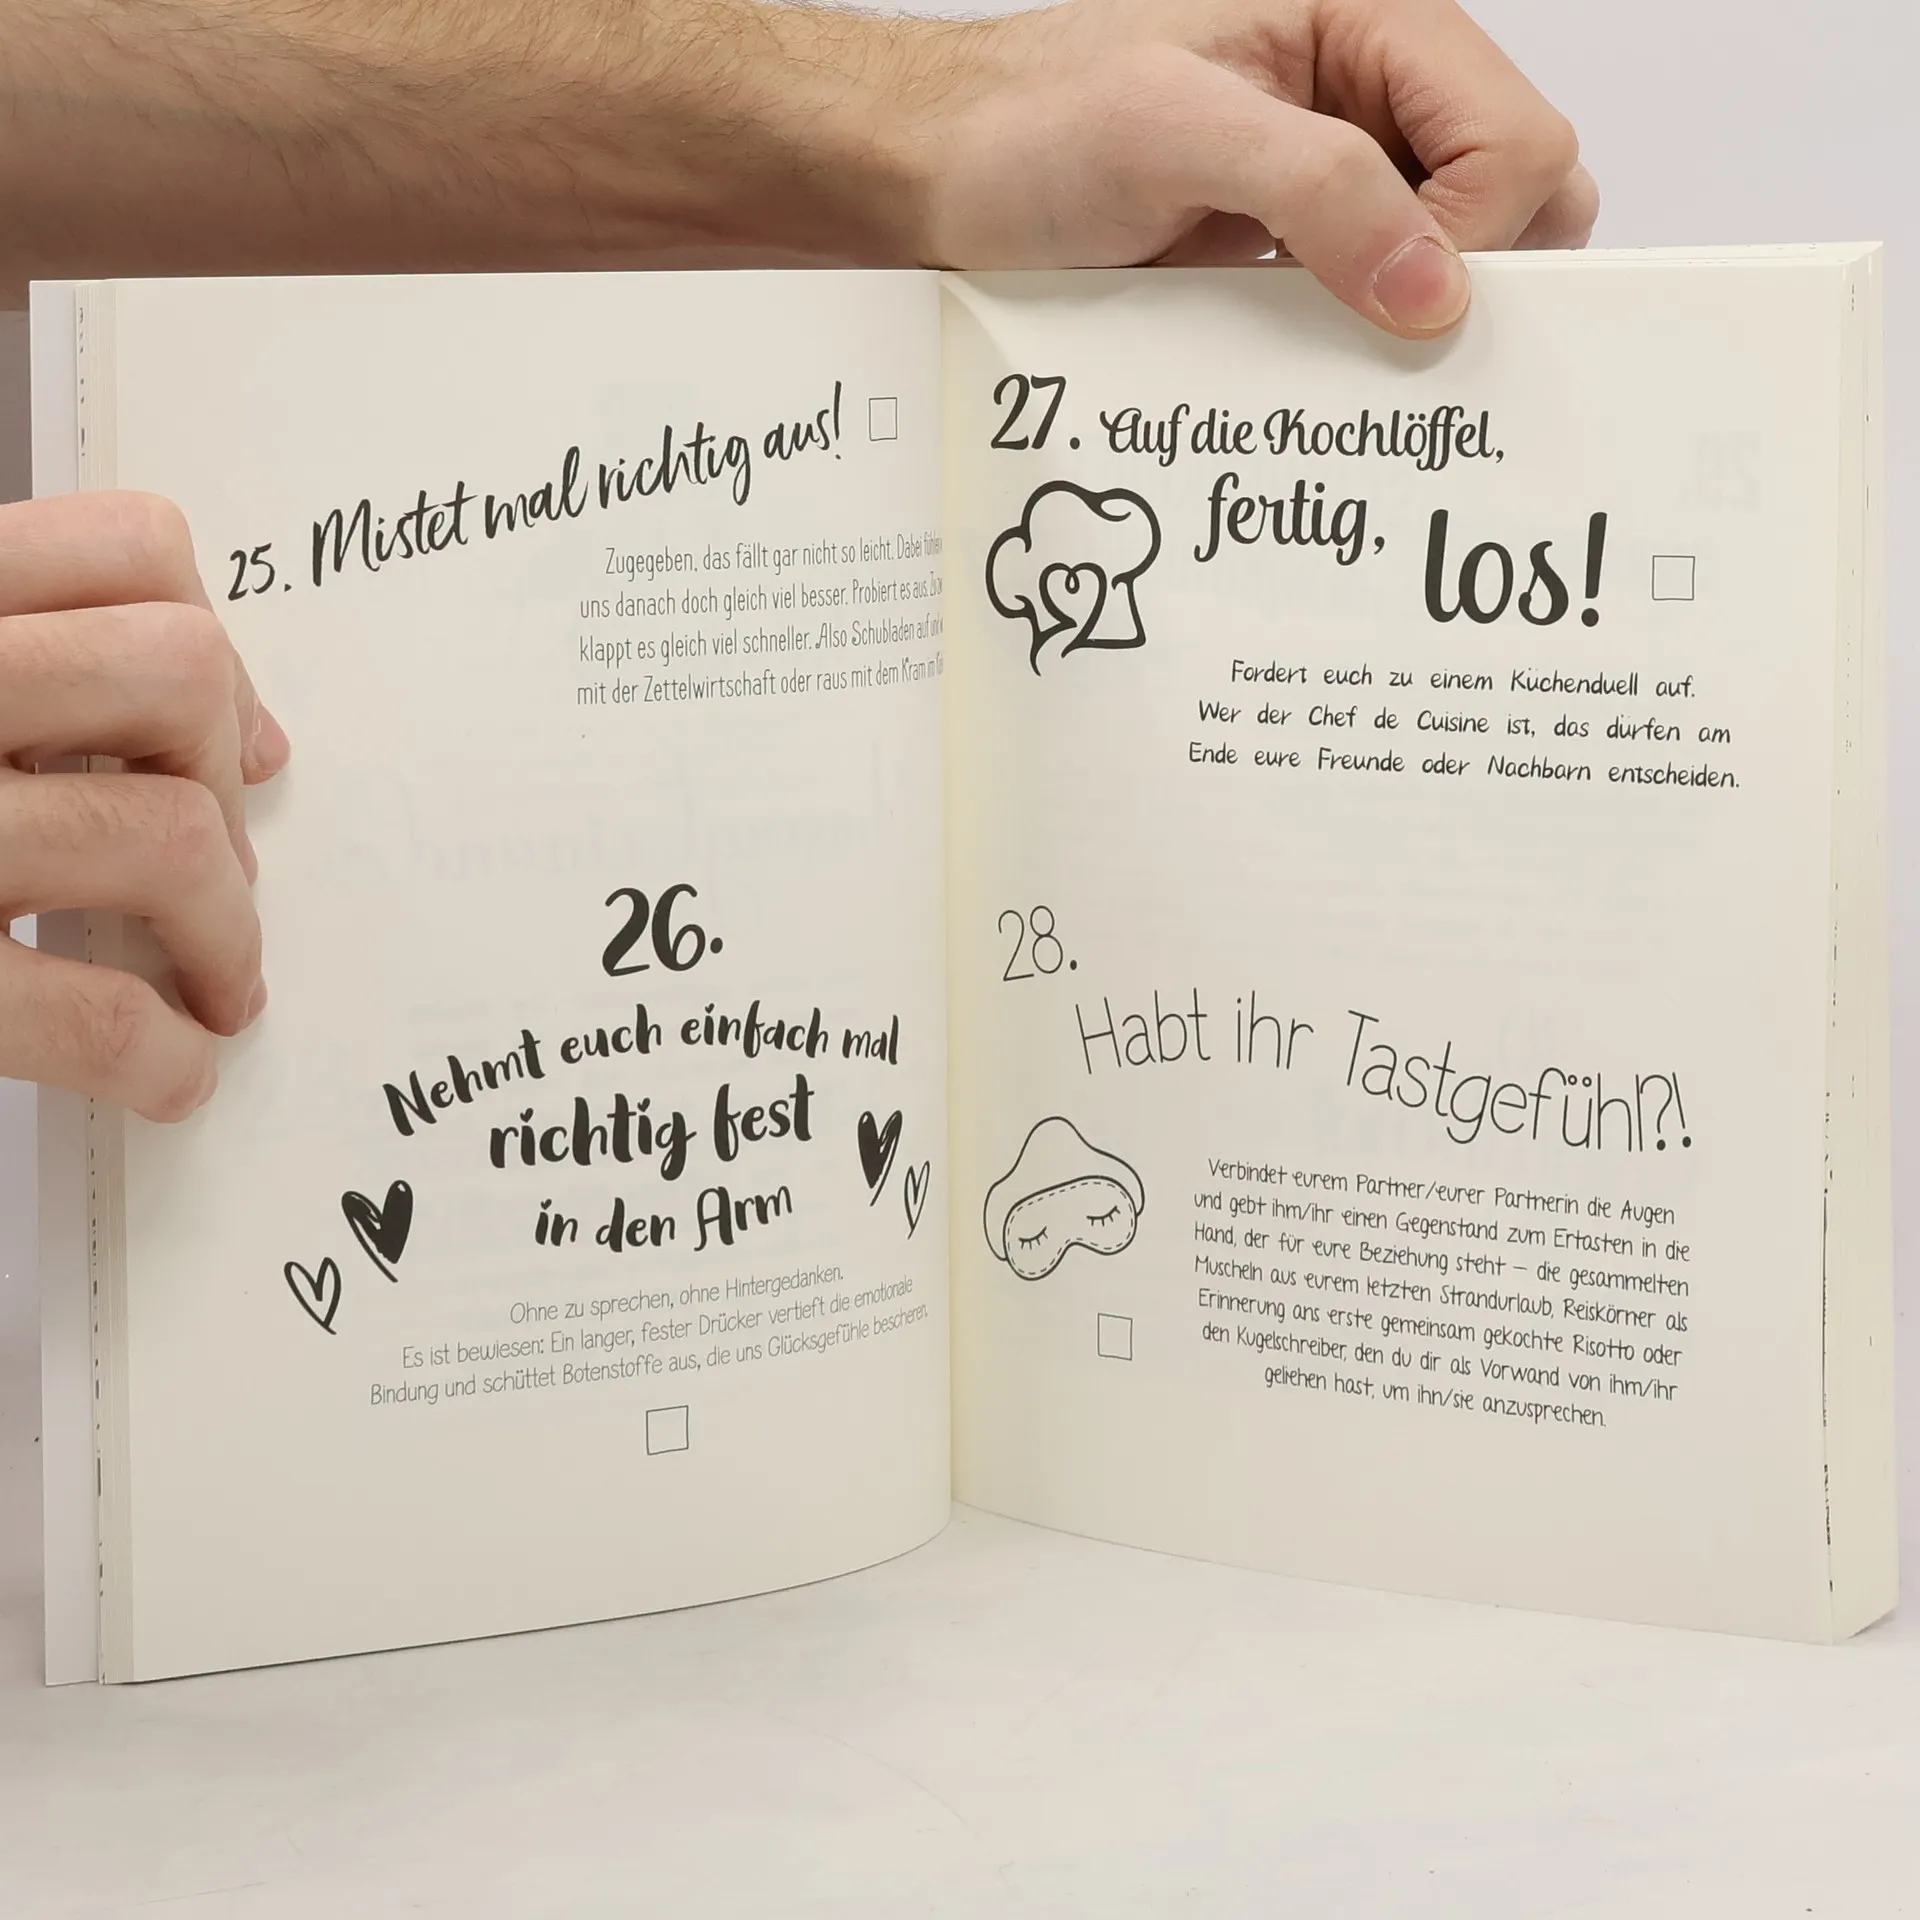 25. Mistet mal richtig aus!
Zugegeben, das fällt gar nicht so leicht. Dabei
uns danach doch gleich viel besser. Probiert es aus.
klappt es gleich viel schneller. Also Schubladen auf
mit der Zettelwirtschaft oder raus mit dem Kram im
26.
Nehmt euch einfach mal
richtig fest
in den Arm
Ohne zu sprechen, ohne Hintergedanken.
Es ist bewiesen: Ein langer, fester Drücker vertieft die emotionale
Bindung und schüttet Botenstoffe aus, die uns Glücksgefühle bescheren.
27. Auf die Kochlöffel,
fertig, los!
Fordert euch zu einem Küchenduell auf.
Wer der Chef de Cuisine ist, das dürfen am
Ende eure Freunde oder Nachbarn entscheiden.
28.
Habt ihr Tastgefühl?!
Verbindet eurem Partner/eurer Partnerin die Augen
und gebt ihm/ihr einen Gegenstand zum Ertasten in die
Hand, der für eure Beziehung steht – die gesammelten
Muscheln aus eurem letzten Strandurlaub, Reiskörner als
Erinnerung ans erste gemeinsam gekochte Risotto oder
den Kugelschreiber, den du dir als Vorwand von ihm/ihr
geliehen hast, um ihn/sie anzusprechen.